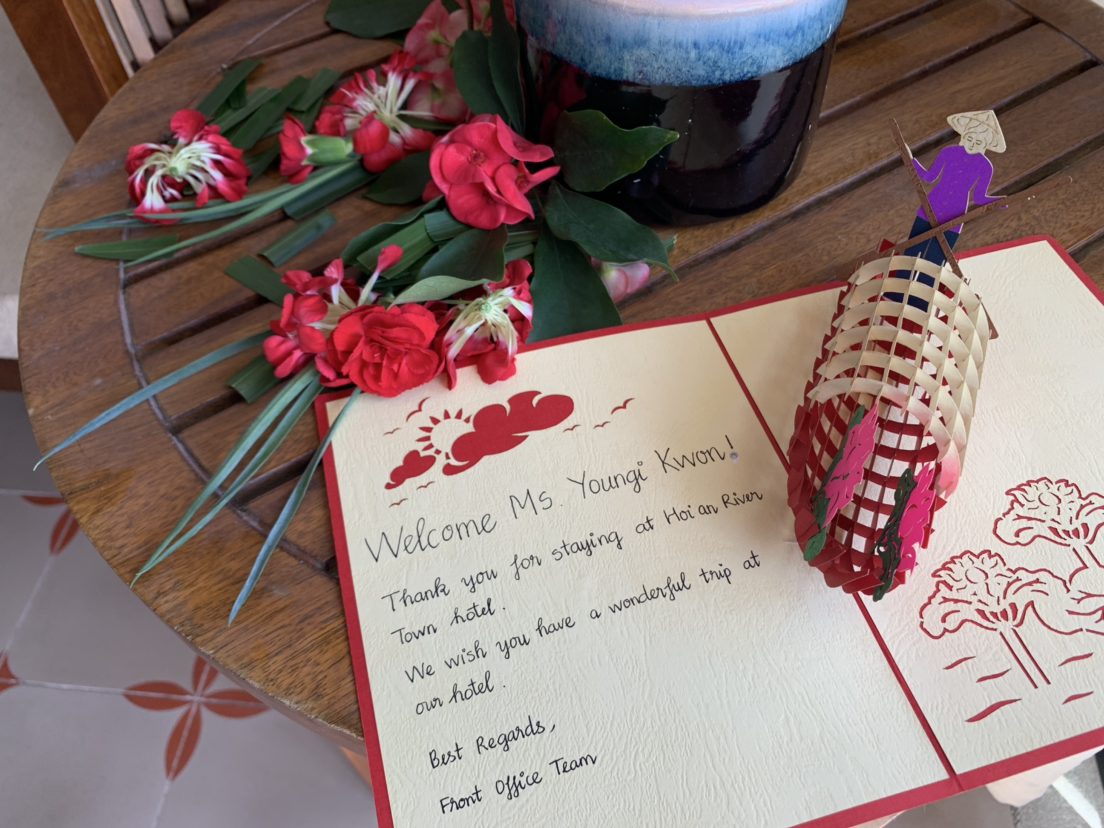 Welcome Ms. Youngi Kwon!
Thank you for staying at Hoi an River
Town hotel.
We wish you have a wonderful trip at
our hotel.
Best Regards,
Front Office Team